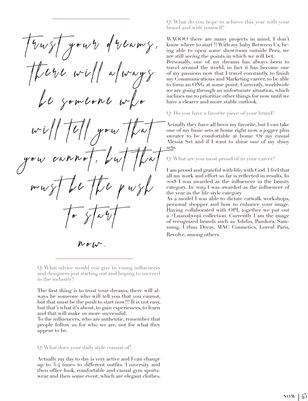 Trust your dreams,
there will always
be someone who
will tell you that
you cannot, but that
must be the push
to start
now.
Q: What advice would you give to young influencers
and designers just starting out and hoping to succeed
in the industry?
The first thing is to trust your dreams, there will al-
ways be someone who will tell you that you cannot,
but that must be the push to start now!!! It is not easy,
but that's what it's about, to gain experiences, to learn
and that will make us more successful.
To the influencers, who are authentic, remember that
people follow us for who we are, not for what they
appear to be.
Q: What does your daily style consist of?
Actually my day to day is very active and I can change
up to 3-4 times to different outfits. University and
then office look, comfortable and casual gym sports-
wear and then some event, which are elegant clothes.
Q: What do you hope to achieve this year with your
brand and with yourself?
WAOOO there are many projects in mind, I don't
know where to start !! With my baby Between Us, be-
ing able to open some showroom outside Peru, we
are still seeing the points in which we will bet.
Personally, one of my dreams has always been to
travel around the world, in fact it has become one
of my passions now that I travel constantly, to finish
my Communications and Marketing career, to be able
to form an ONG at some point. Currently, worldwide
we are going through an unfortunate situation, which
inclines me to prioritize other things for now until we
have a clearer and more stable outlook.
Q: Do you have a favorite piece of your brand?
Actually they have all been my favorite, but I can take
one of my basic sets at home right now, a jogger plus
sweater to be comfortable at home. Or my casual
Alessia Set and if I want to shine one of my shiny
sets.
Q: What are you most proud of in your career?
I am proud and grateful with life, with God. I feel that
all my work and effort so far is reflected in results. In
2018 I was awarded as the influencer in the beauty
category. In 2019 I was awarded as the influencer of
the year in the life style category.
As a model I was able to dictate catwalk workshops,
personal shopper and how to enhance your image.
Having collaborated with OPI, together we put out
a #Lunaxbyopi collection. Currently I am the image
of recognized brands such as Adidas, Pandora, Sam-
sung, Urban Decay, MAC Cosmetics, Loreal Paris,
Revolve, among others.
NOW |